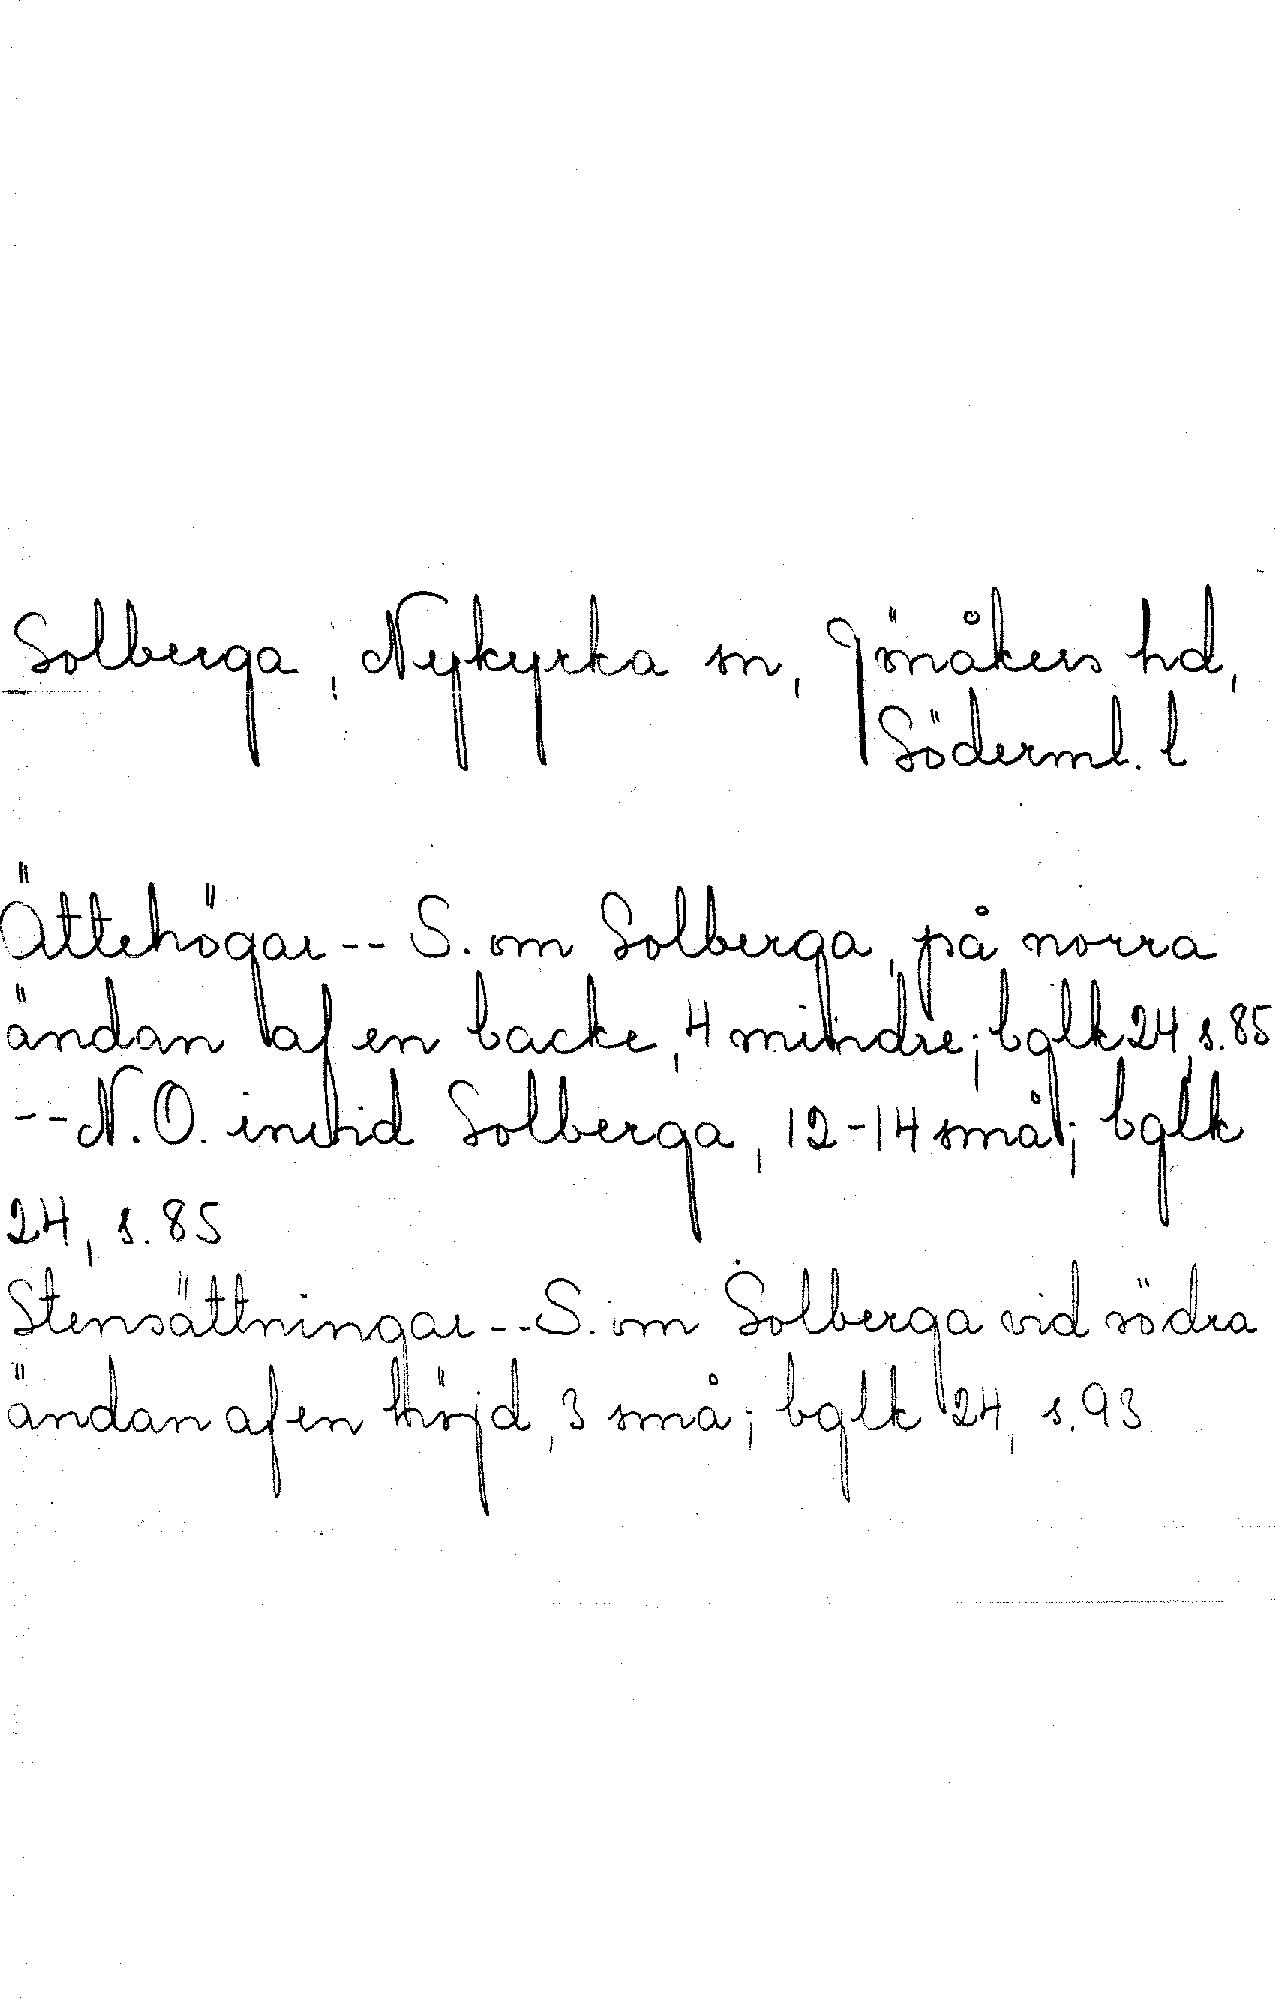 Solberga, Nykyrka sn, Jönåkers hd,
Söderml. l
Ättehögar -- S. om Solberga, på norra
ändan af en backe, 4 mindre; bglk 24, s. 85
-- N.O. invid Solberga, 12-14 små; bglk
24, s. 85
Stensättningar -- S. om Solberga vid södra
ändan af en höjd, 3 små; bglk 24, s. 93